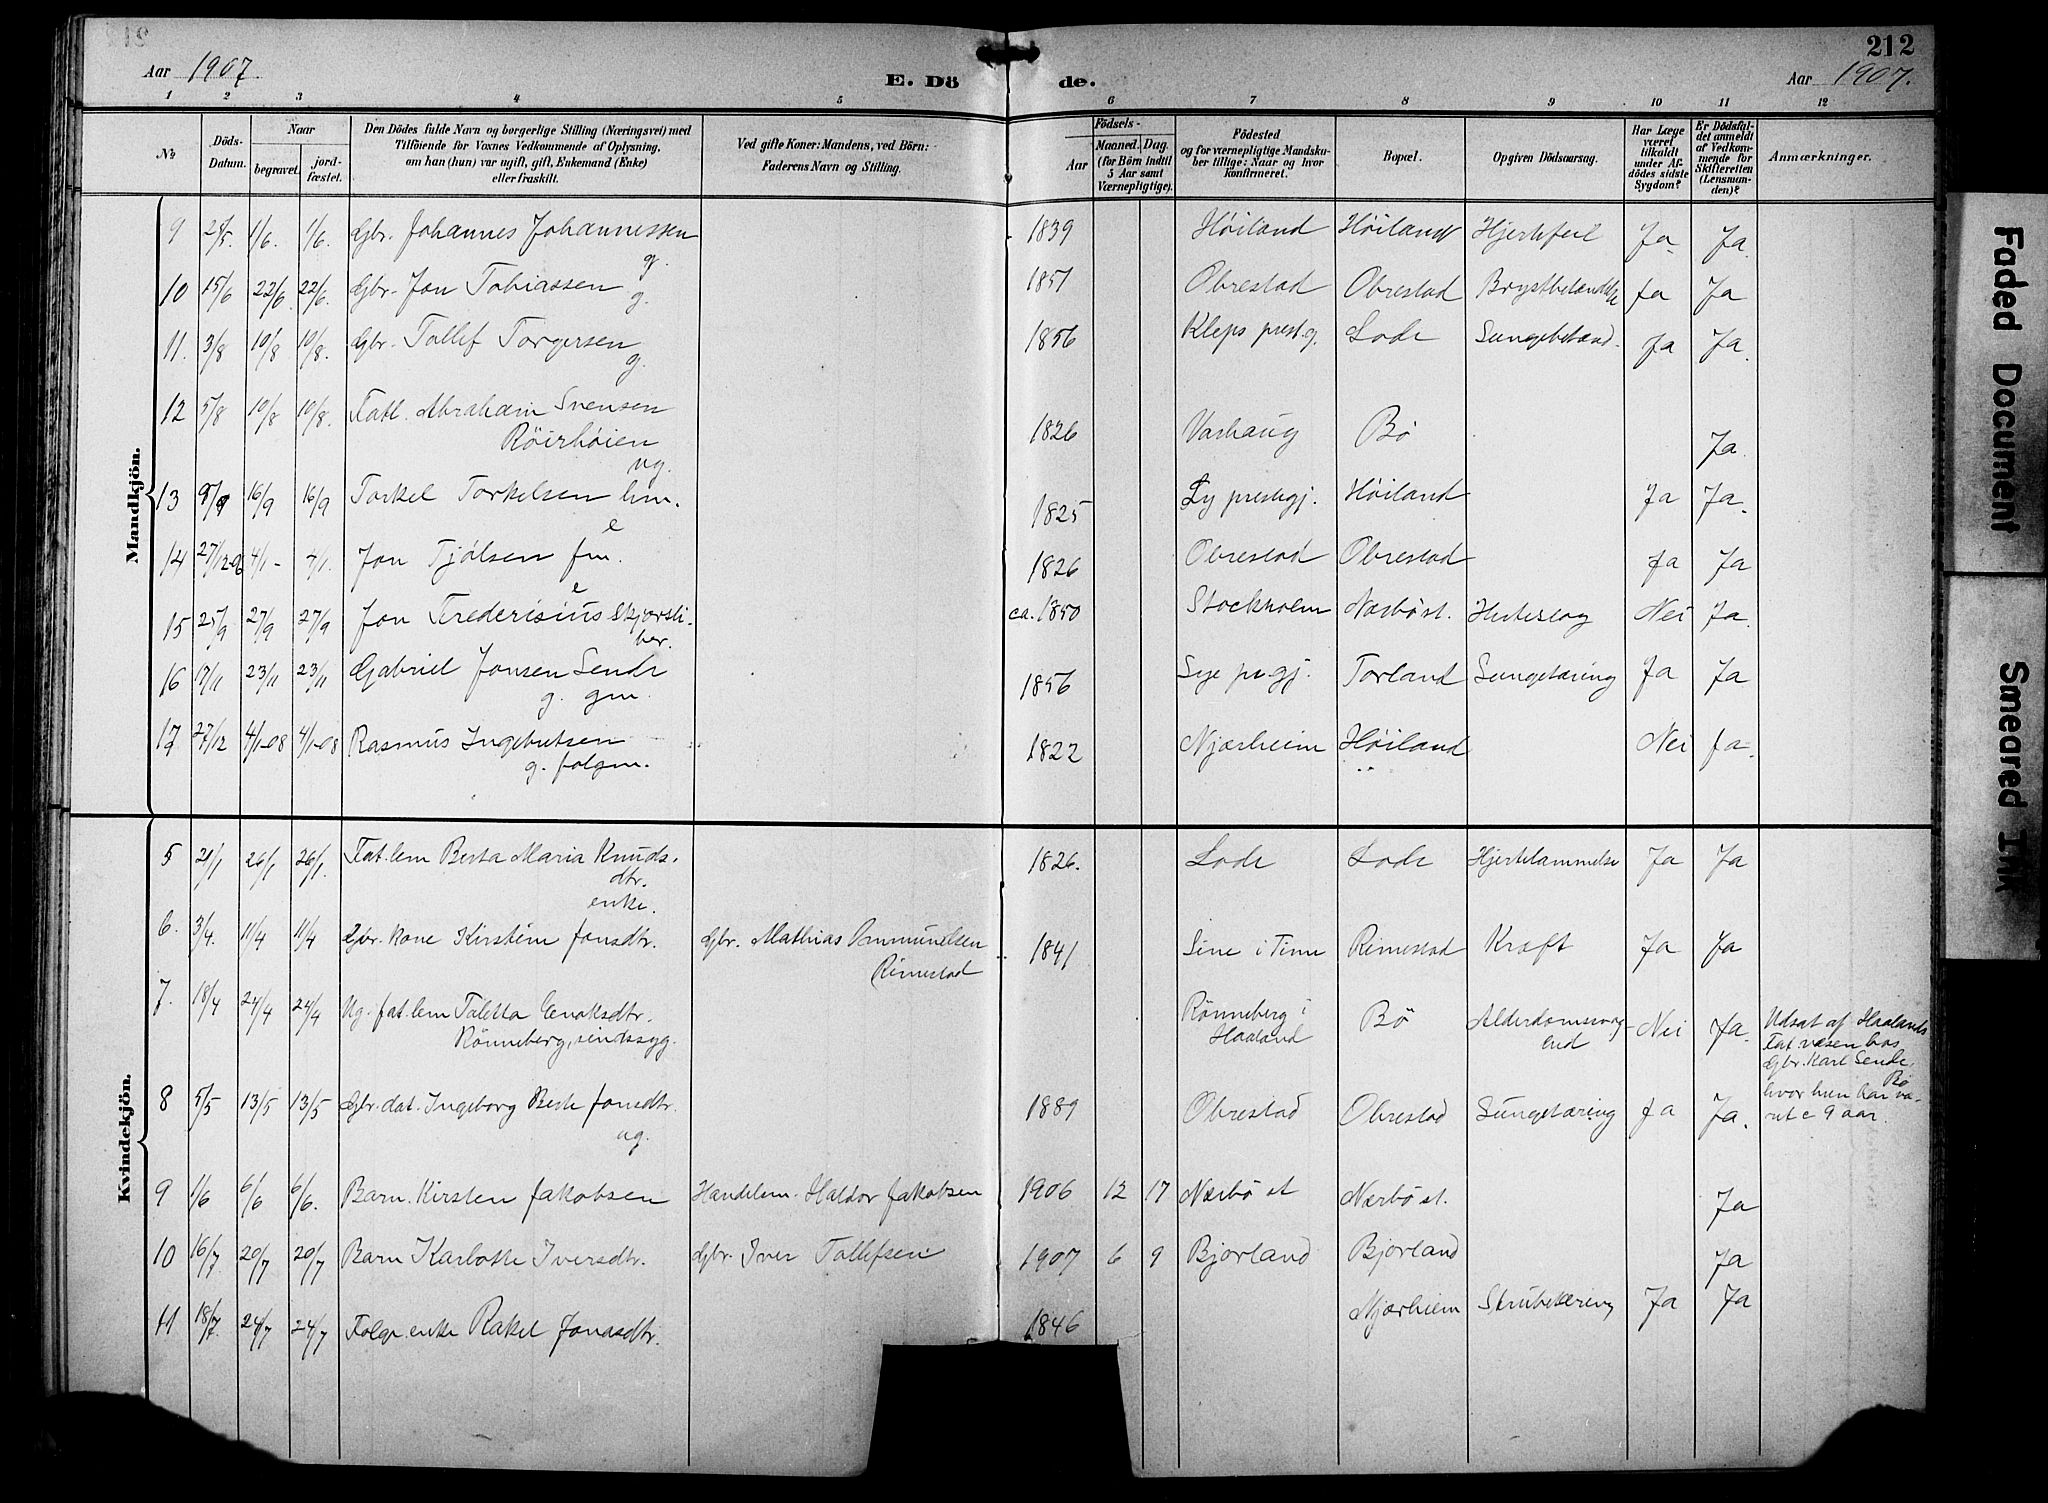 212
Aar 1907.
E. Dö de.
Aar 1907.
1 2 3 4 5 6 7 8 9 10 11 12
No.
Döds-Datum.
Naar
begravet.
jord-fæstet.
Den Dödes fulde Navn og borgerlige Stilling (Næringsvei) med
Tilföiende for Voxnes Vedkommende af Oplysning,
om han (hun) var ugift, gift, Enkemand (Enke)
eller fraskilt.
Ved gifte Koner: Mandens, ved Börn:
Faderens Navn og Stilling.
Födsels-
Aar
Maaned. Dag.
(for Börn indtil
5 Aar samt
Værnepligtige).
Födested
og for værnepligtige Mandsku-
ber tillige: Naar og hvor
konfirmeret.
Bopæl.
Opgiven Dödsaarsag.
Har Læge
været
tilkaldt
under Af-
dödes sidste
Sygdom?
Er Dödsfal-
det anmeldt
af Vedkom-
mende for
Skifteretten
(Lensman-
den)?
Anmærkninger.
Mandkjön.
9 28/5. 1/6. 1/6. Gbr. Johannes Johannessen 1839 Höiland Höiland Hjertefeil Ja Ja.
g.
10 15/6 22/6. 22/6. Gbr. Jon Tobiassen 1851 Obrestad Obrestad Brystbetændelse Ja Ja
g.
11. 3/8 10/8 10/8. Gbr. Tollef Torgersen 1856 Kleps prest.g. Lode Lungebetænd. Ja Ja.
g.
12 5/8 10/8 10/8. Fatl. Abraham Svensen
Röirhöien 1826 Varhaug Bö Ja.
ug.
13 9/9 16/9 16/9 Torkel Torkelsen lm. 1825 Ly prestegj. Höiland Ja Ja.
e
14 27/12-06 4/1- 4/1. Jon Tjölsen fm. 1826 Obrestad Obrestad Ja Ja
e
15 25/9 27/9 27/9 Jon Frederisius Skjærsli-
ber. ca. 1850 Stockholm Nærbö st. Hjerteslag Nei Ja.
16 17/11 23/11 23/11 Gabriel Jonsen Sende 1856 Lye pr.gj. Torland Lungetæring Ja Ja
g. gm.
17 27/12 4/1-08 4/1-08 Rasmus Ingebretsen 1822 Njærheim Höiland Nei Ja.
g. folgm.
Kvindekjön.
5 21/1 26/1 26/1. Fat.lem Berta Maria Knuds-
dtr. 1826. Lode Lode Hjertelammelse Ja Ja
enke.
6. 3/4. 11/4 11/4 Gbr. kone Kirstein Jonsdtr. Gbr. Mathias Ommundsen
Rimestad 1841 Line i Time Rimestad Kræft Ja Ja
7. 18/4 24/4 24/4 Ug. fat.lem Taletta Enoksdtr.
Rönneberg, sindssyg. Rönneberg i
Haaland Bö Alderdomssvag-
hed Nei Ja. Udsat af Haalands
Fat væsen hos
Gbr. Karl Sende,
Bö
hvor hun har væ-
ret c 9 aar.
8 5/5 13/5 13/5 Gbr. dat. Ingeborg Berte Jonsdtr. 1889 Obrestad Obrestad Lungetæring Ja Ja.
ug.
9 1/6 6/6 6/6. Barn. Kirsten Jakobsen Handelsm. Haldor Jakobsen 1906 12 17 Nærbö st Nærbö st. Ja
10 16/7. 20/7 20/7 Barn Karlotte Iversdtr. Gbr Iver Tollefsen 1907 6 9 Bjorland Bjorland Ja
11 18/7. 24/7 24/7 Folge.enke Rakel Jonasdtr. 1846 Njærheim Strubetæring Ja Ja
Faded Document
Smeared Ink